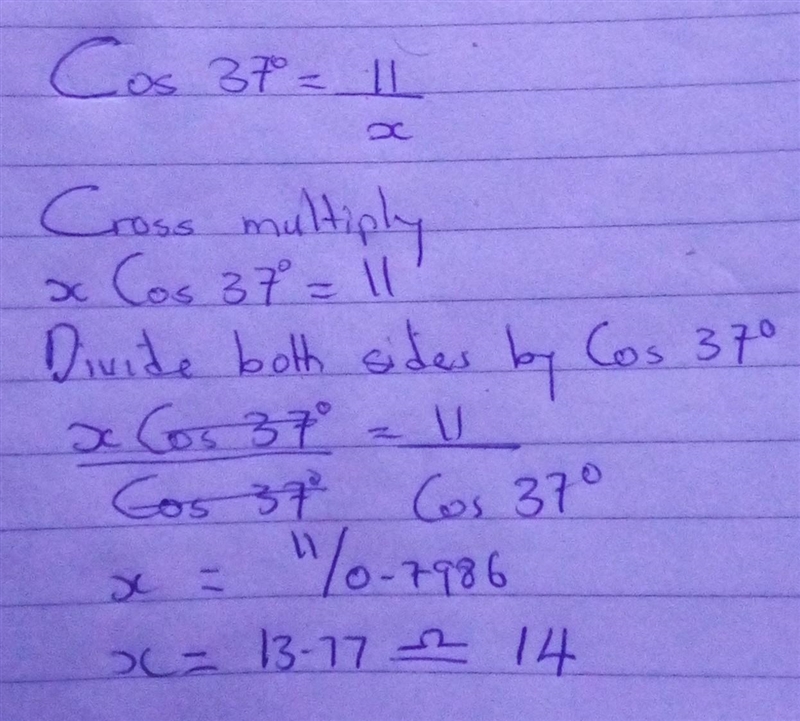 Cos 37° = 11/x
Cross multiply
x Cos 37° = 11
Divide both sides by Cos 37°
x Cos 37°/Cos 37° = 11/Cos 37°
x = 11/0-7986
x = 13-77 ≏ 14